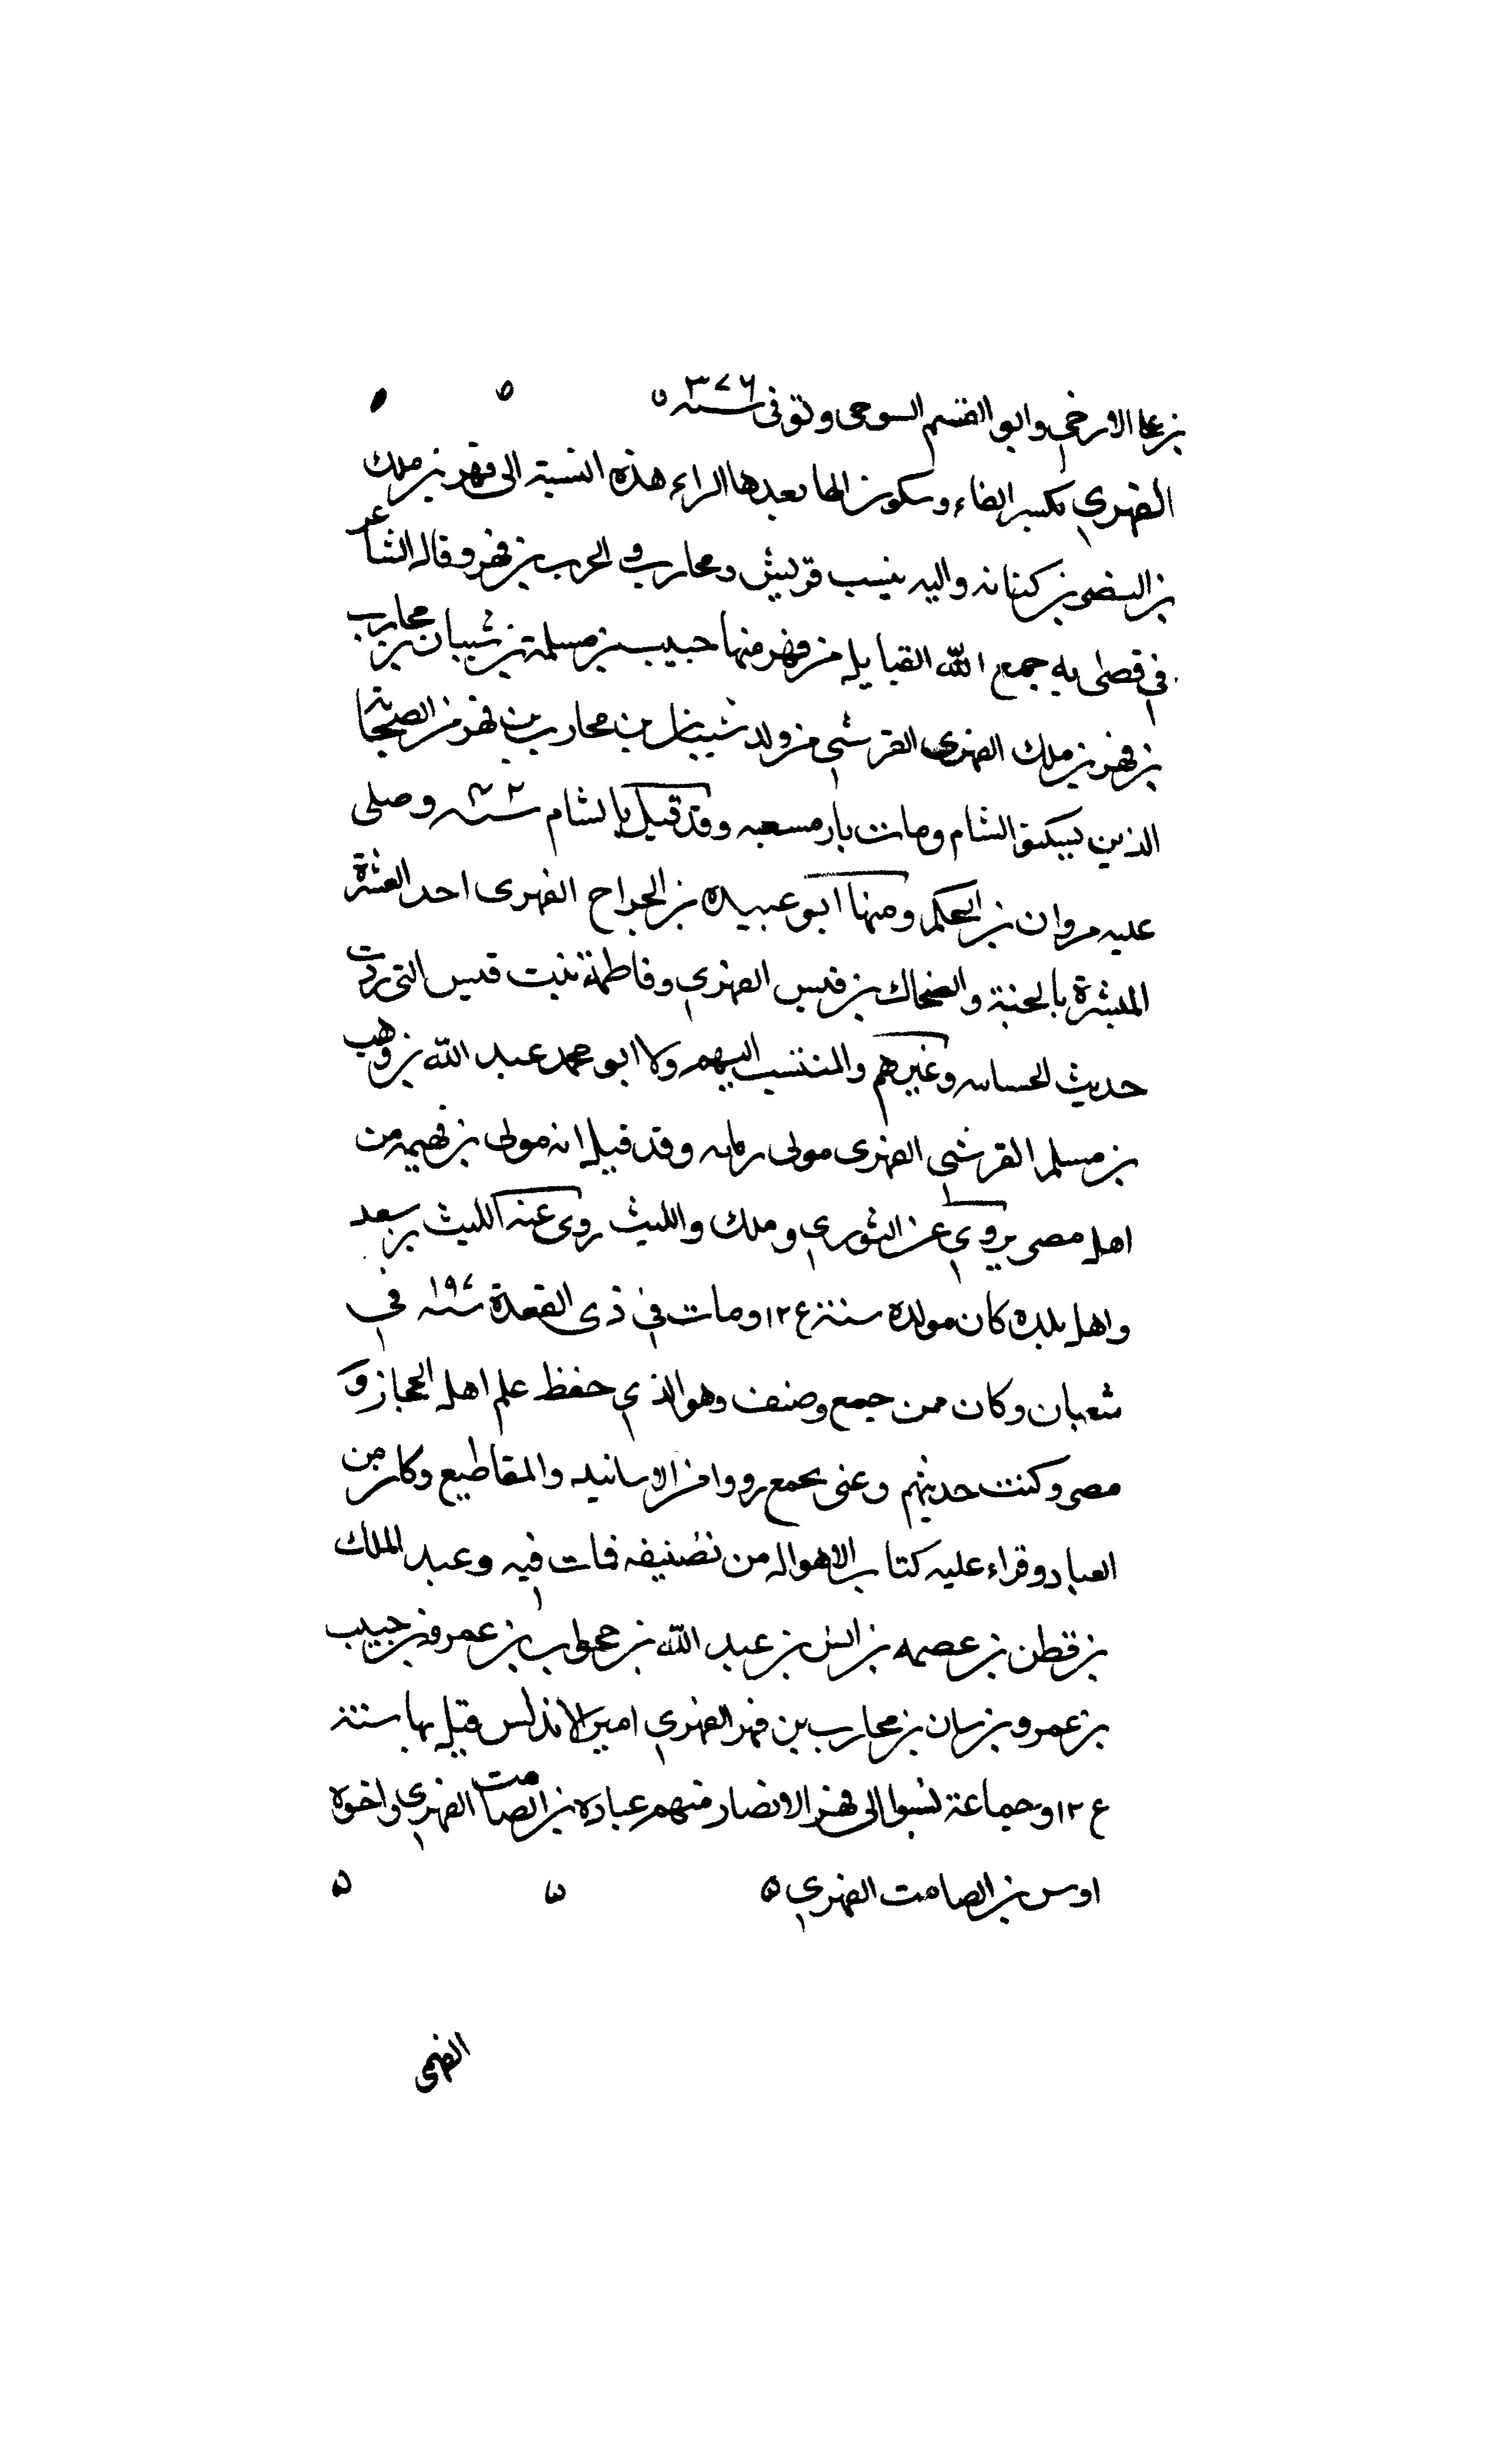 بن علي الارخي وابو القسم السوحى وتوفى سنه ٣٧٦
الفهري بكسر الفاء وسكون الها بعدها الراء هذه النسبة الى فهر بن ملك
بن النضر بن كنانه واليه ينسب قريش ومحارب والحرب بن فهر وقال الشاعر
في قصى به جمع الله القبايل من فهر منها حبيب بن مسلمة بن شيبان بن محارب
بن فهر بن ملك الفهرى القرشي من ولد شيبان بن محارب بن فهر من الصحابة
الذين سكنوا الشام ومات بارمينيه وقد قيل بالشام سنه ٤٢ وصلى
عليه مروان بن الحكم ومنها ابو عبيده بن الجراح الفهرى احد العشرة
المبشرة بالجنة والضحاك بن قيس الفهري وفاطمة بنت قيس التى روت
حديث الجساسه وغيرهم والمنتسب اليهم ولا ابو محمد عبد الله بن وهب
بن مسلم القرشي الفهرى مولى رمانه وقد قيل انه مولى بن فهيمه من
اهل مصر يروي عن الثوري وملك والليث روى عنه الليث بن سعد
واهل بلده كان مولده سنة ١٢٤ ومات في ذى القعدة سنه ١٩٧ في
شعبان وكان ممن جمع وصنف وهو الذي حفظ علم اهل الحجاز و
مصر وكتب حديثهم وعنى بجمع رووا من الاسانيد والمقاطيع وكان من
العباد وقراء عليه كتاب الاهوال من تصنيفه فمات فيه وعبد الملك
بن قطن بن عصمه بن انس بن عبد الله بن جحوان بن عمرو بن حبيب
بن عمرو بن سان بن محارب بن فهر الفهري امير الاندلس قتل بها سنة
١٢٤ وجماعة نسبوا الى فهر الانصار منهم عباده بن الصامت الفهري واخوه
اوس بن الصامت الفهري
الفهمى